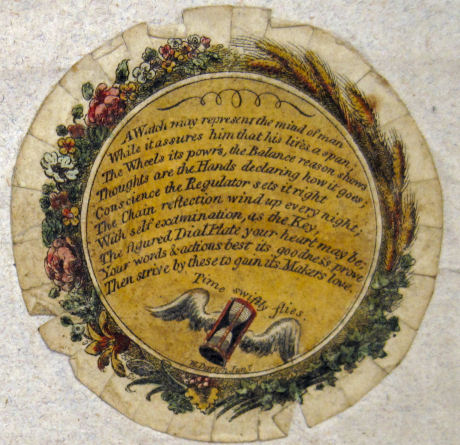 A Watch may represent the mind of man
While it assures him that his life's a span,
The Wheels its pow'rs, the Balance reason shews,
Thoughts are the Hands declaring how it goes,
Conscience the Regulator sets it right
The Chain reflection wind up every night;
With self examination, as the Key,
The figured Dial Plate your heart may be,
Your words & actions best its goodness prove,
Then strive by these to gain its Makers love.
Time swiftly flies.